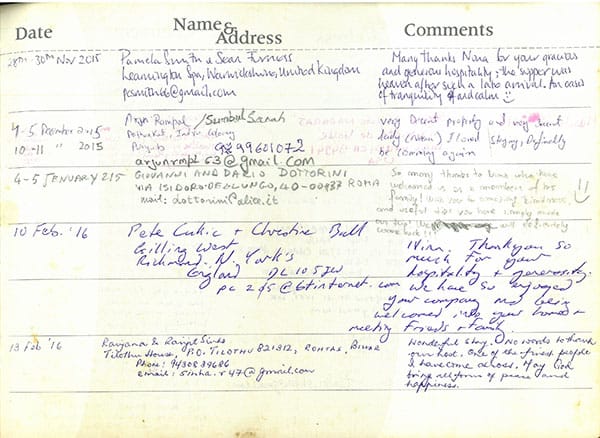 Date
Name & Address
Comments
28th - 30th Nov 2015
Pamela Smith & Sean Furness
Leamington Spa, Warwickshire, United Kingdom
pcsmith66@gmail.com
Many thanks Nina for your gracious
and generous hospitality; the supper was
heaven after such a late arrival. An oasis
of tranquility and calm
4-5 December 2015
10-11 " 2015
/Sumbul Sarah
Punjab
9299601072
arjunrmpl63@gmail.com
very Decent property and very decent
lady (owner) I loved staying, Definitely
be coming again
4-5 JENUARY 215
GIOVANNI AND DARIO DOTTORINI
VIA ISIDORO DEL LUNGO, 40-00937 ROMA
mail: dottorini@alice.it
So many thanks to Nina who have
welcomed us as a members of his
family! Wish you to
and useful tips you have
our
come back!!
10 Feb. '16
Pete Cukic + Christine Ball
Gilling West
Richmond. N. York's
England DL10 5JW
pc2@5@btinternet.com
Nina. Thankyou so
much for your
hospitality + generosity.
We have so enjoyed
your company and being
welcomed into your home &
meeting friends + family.
13 Feb '16
Ranjana & Ranjit Sinha
Tilothu House, P.O. TILOTHU 821312, ROHTAS, BIHAR
Phone: 9430839686
email: sinha.r47@gmail.com
Wonderful stay. No words to thank
our host. One of the finest people
I have come across. May God
bring all forms of peace and
happiness.